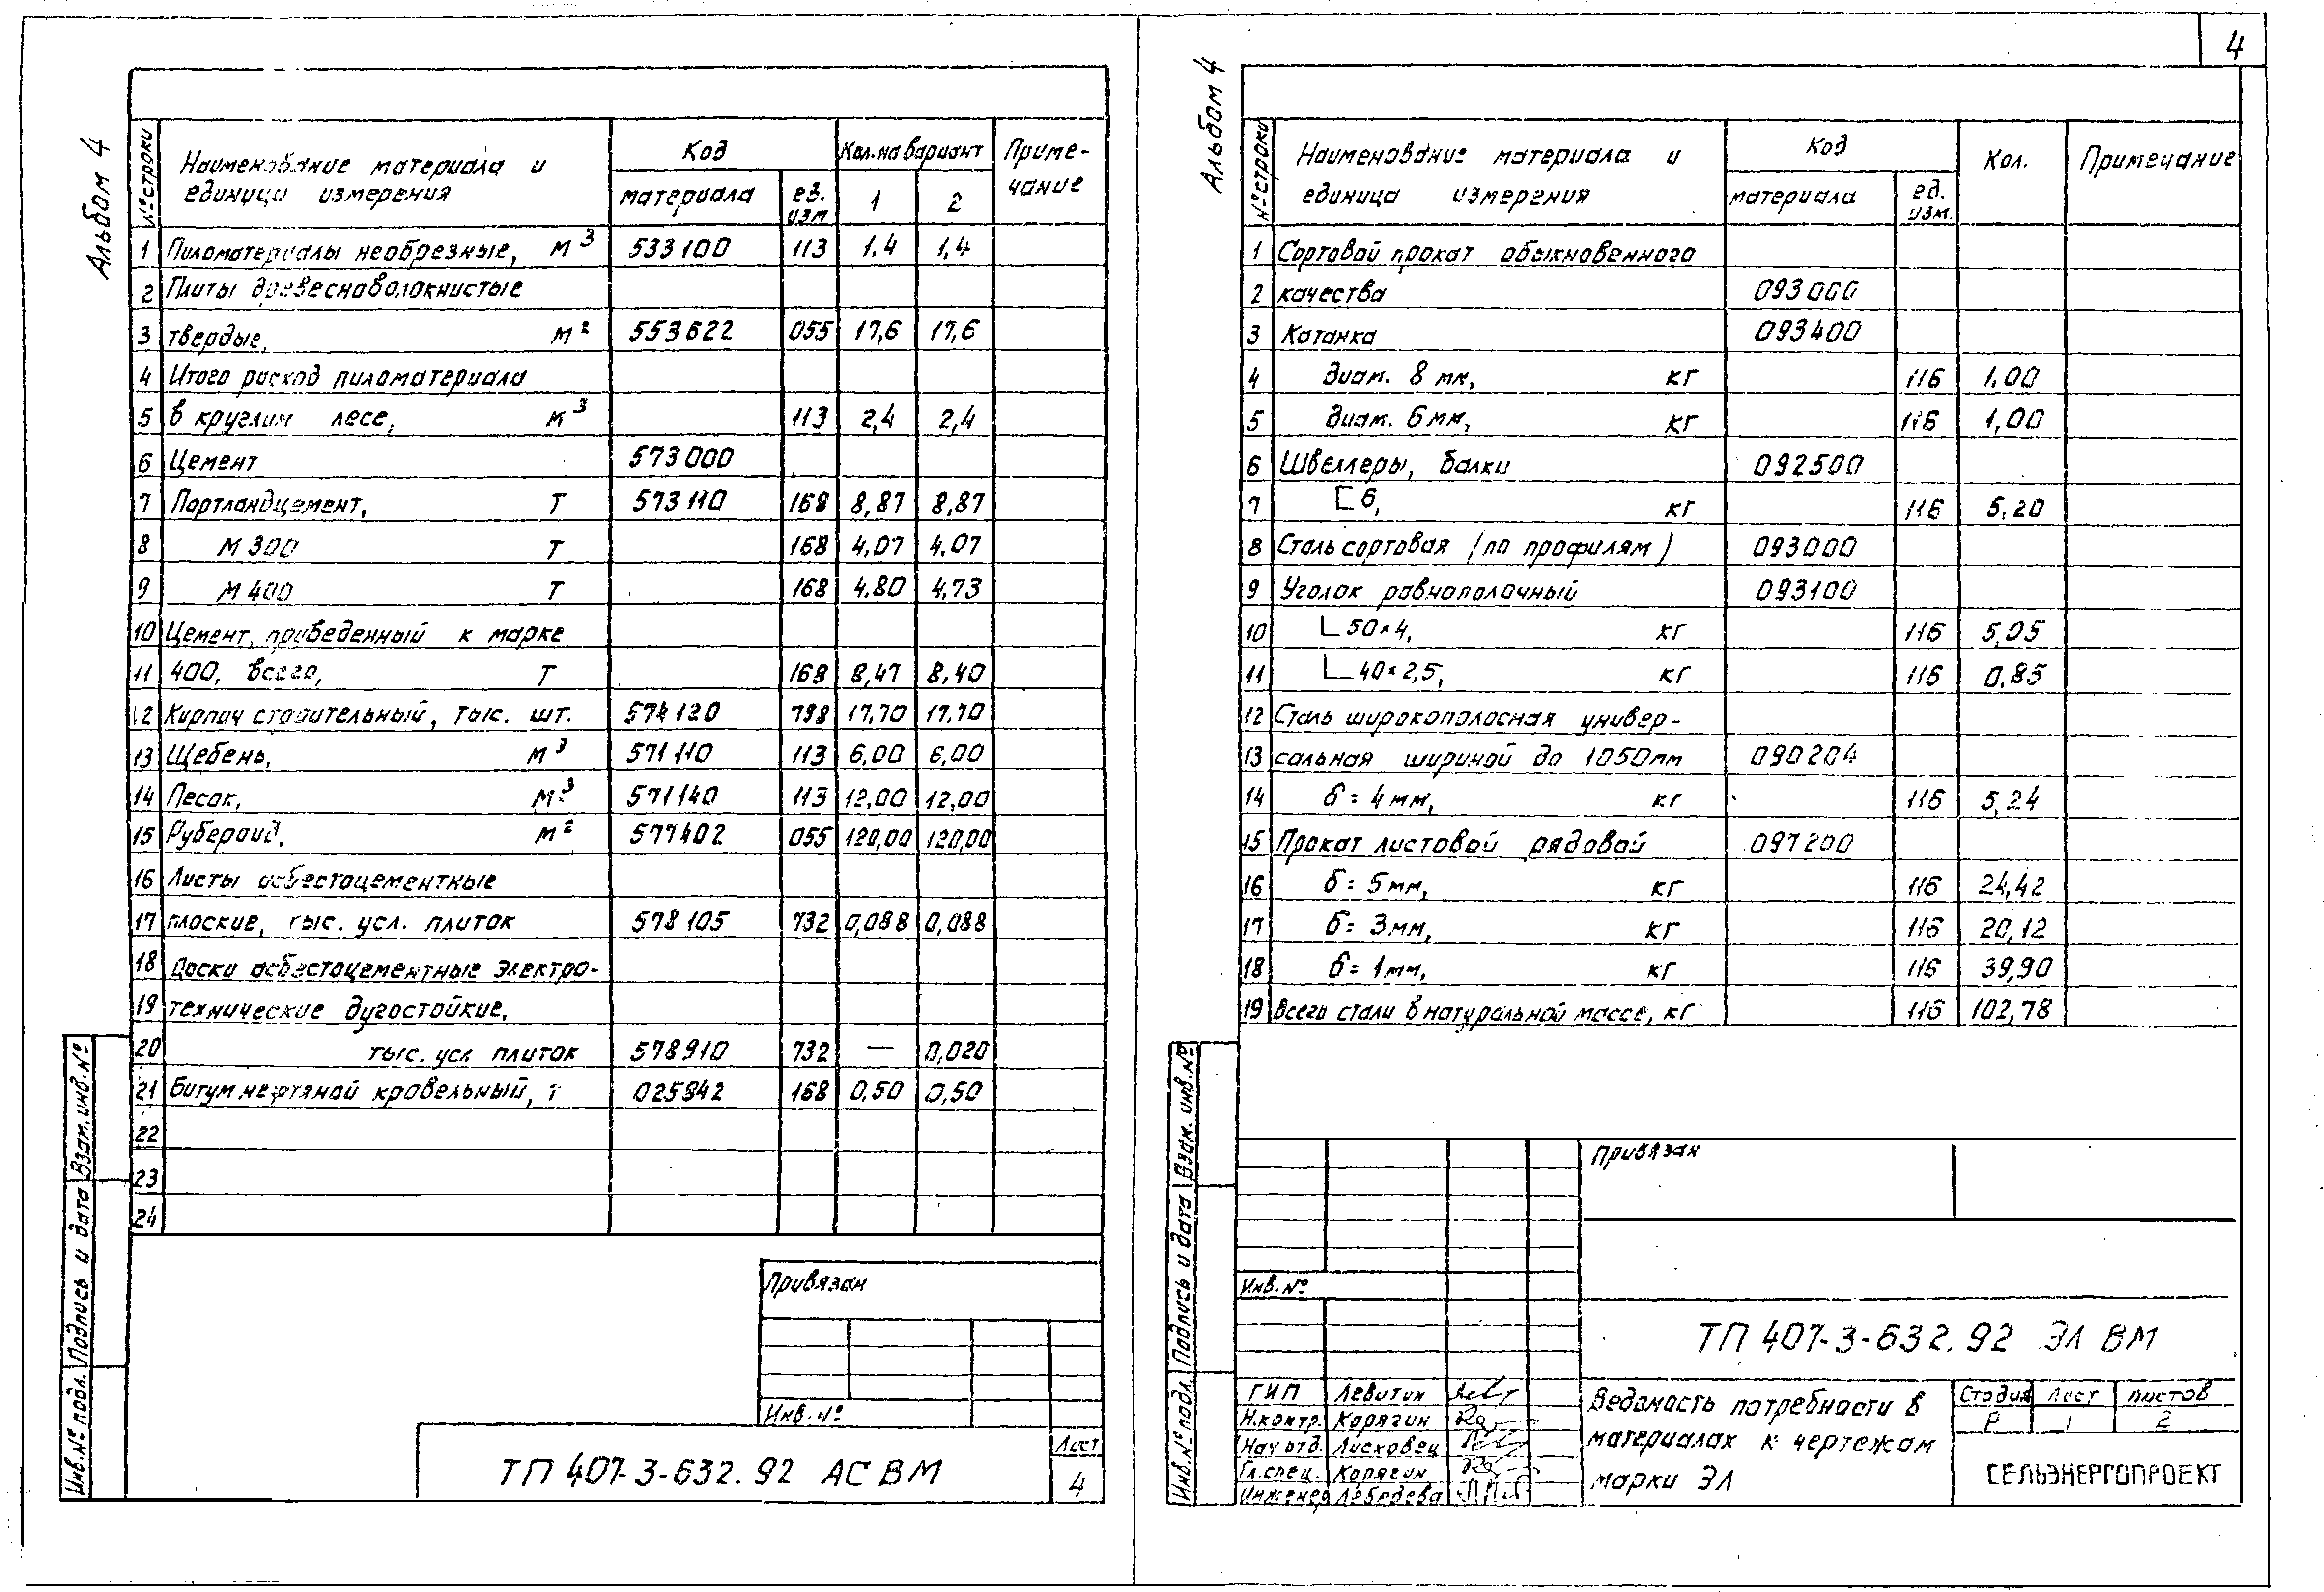 4
Альбом 4
№ строки
Наименование материала и единица измерения
Код
Кол. на вариант
Приме-
чание
материала
ед. изм
1
2
1 Пиломатериалы необрезные, м3 533100 113 1,4 1,4
2 Плиты древесноволокнистые
3 твердые, м2 553622 055 17,6 17,6
4 Итого расход пиломатериала
5 в круглом лесе, м3 113 2,4 2,4
6 Цемент 573000
7 Портландцемент, т 573110 168 8,87 8,87
8 М 300 т 168 4,07 4,07
9 М 400 т 168 4,80 4,73
10 Цемент, приведенный к марке
11 400, всего, т 168 8,47 8,40
12 Кирпич строительный, тыс. шт. 574120 798 17,70 17,70
13 Щебень, м3 571110 113 6,00 6,00
14 Песок, м3 571140 113 12,00 12,00
15 Рубероид, м2 577402 055 120,00 120,00
16 Листы асбестоцементные
17 плоские, тыс. усл. плиток 578105 732 0,088 0,088
18 Доски асбестоцементные электро-
19 технические дугостойкие,
20 тыс. усл плиток 578910 732 — 0,020
21 Битум нефтяной кровельный, т 025842 168 0,50 0,50
22
23
24
Привязан
Инв. №
ТП 407-3-632.92 АС ВМ
Лист
4
Инв. № подл. Подпись и дата Взам. инв. №
Альбом 4
№ строки
Наименование материала и единица измерения
Код
Кол.
Примечание
материала
ед. изм.
1 Сортовой прокат обыкновенного
2 качества 093000
3 Катанка 093400
4 диам. 8 мм, кг 116 1,00
5 диам. 6 мм, кг 116 1,00
6 Швеллеры, балки 092500
7 [ 6, кг 116 5,20
8 Сталь сортовая (по профилям) 093000
9 Уголок равнополочный 093100
10 L 50×4, кг 116 5,05
11 L 40×2,5, кг 116 0,85
12 Сталь широкополосная универ-
13 сальная шириной до 1050мм 090204
14 б = 4 мм, кг 116 5,24
15 Прокат листовой рядовой 097200
16 б = 5 мм, кг 116 24,42
17 б = 3 мм, кг 116 20,12
18 б = 1 мм, кг 116 39,90
19 Всего стали в натуральной массе, кг 116 102,78
Привязан
Инв. №
ТП 407-3-632.92 ЭЛ ВМ
ГИП Левитин
Н.контр. Корягин
Нач отд. Лисковец
Гл.спец. Корягин
Инженер Лебедева
Ведомость потребности в
материалах к чертежам
марки ЭЛ
Стадия Лист Листов
Р 1 2
СЕЛЬЭНЕРГОПРОЕКТ
Инв. № подл. Подпись и дата Взам. инв. №